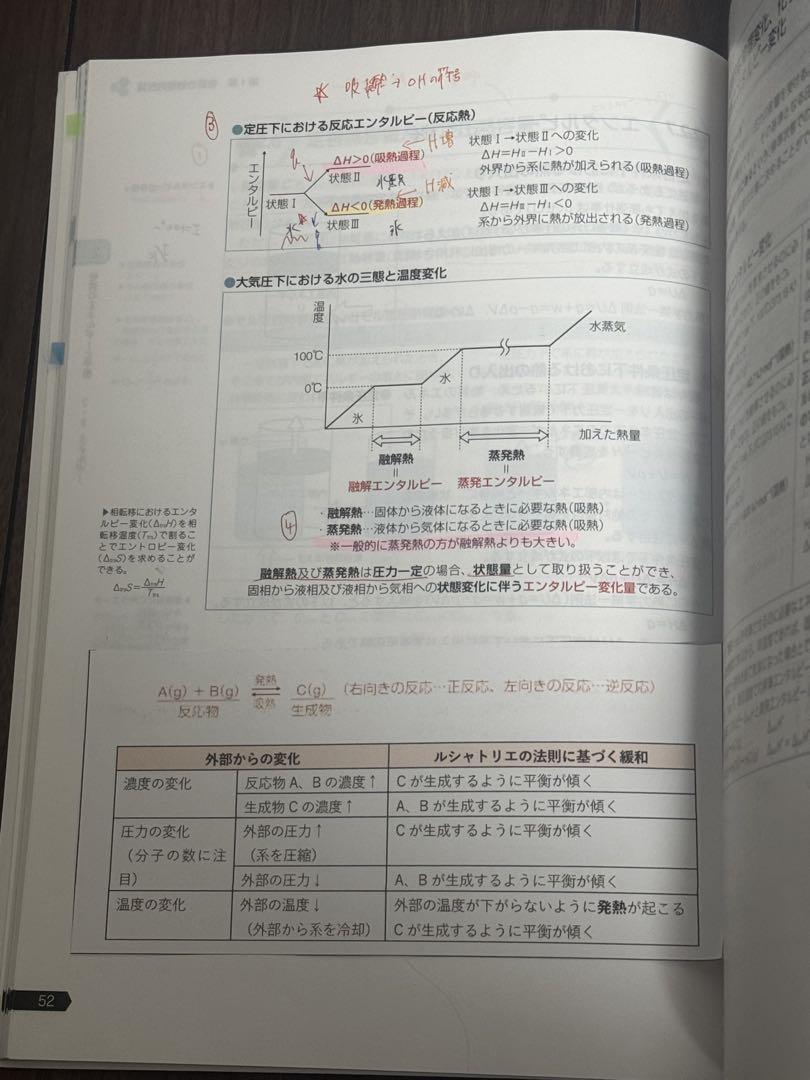 ③
●定圧下における反応エンタルピー(反応熱)
エンタルピー
状態Ⅰ
ΔH>0(吸熱過程)
H増
状態Ⅱ
水蒸気
ΔH<0(発熱過程)
H減
状態Ⅲ
水
氷
状態Ⅰ→状態Ⅱへの変化
ΔH=HⅡ−HⅠ>0
外界から系に熱が加えられる(吸熱過程)
状態Ⅰ→状態Ⅲへの変化
ΔH=HⅢ−HⅠ<0
系から外界に熱が放出される(発熱過程)
●大気圧下における水の三態と温度変化
温度
100℃
0℃
氷
水
水蒸気
加えた熱量
融解熱
=
融解エンタルピー
蒸発熱
=
蒸発エンタルピー
④
・融解熱…固体から液体になるときに必要な熱(吸熱)
・蒸発熱…液体から気体になるときに必要な熱(吸熱)
※一般的に蒸発熱の方が融解熱よりも大きい。
融解熱及び蒸発熱は圧力一定の場合、状態量として取り扱うことができ、
固相から液相及び液相から気相への状態変化に伴うエンタルピー変化量である。
▶相転移におけるエンタ
ルピー変化(ΔtrsH)を相
転移温度(Ttrs)で割るこ
とでエントロピー変化
(ΔtrsS)を求めることが
できる。
ΔtrsS=ΔtrsH/Ttrs
A(g) + B(g) 発熱 ⇄ 吸熱 C(g) (右向きの反応…正反応、左向きの反応…逆反応)
反応物 生成物
外部からの変化 ルシャトリエの法則に基づく緩和
濃度の変化 反応物 A、B の濃度↑ C が生成するように平衡が傾く
生成物 C の濃度↑ A、B が生成するように平衡が傾く
圧力の変化 外部の圧力↑ C が生成するように平衡が傾く
(分子の数に注 (系を圧縮)
目) 外部の圧力↓ A、B が生成するように平衡が傾く
温度の変化 外部の温度↓ 外部の温度が下がらないように発熱が起こる
(外部から系を冷却) C が生成するように平衡が傾く
52